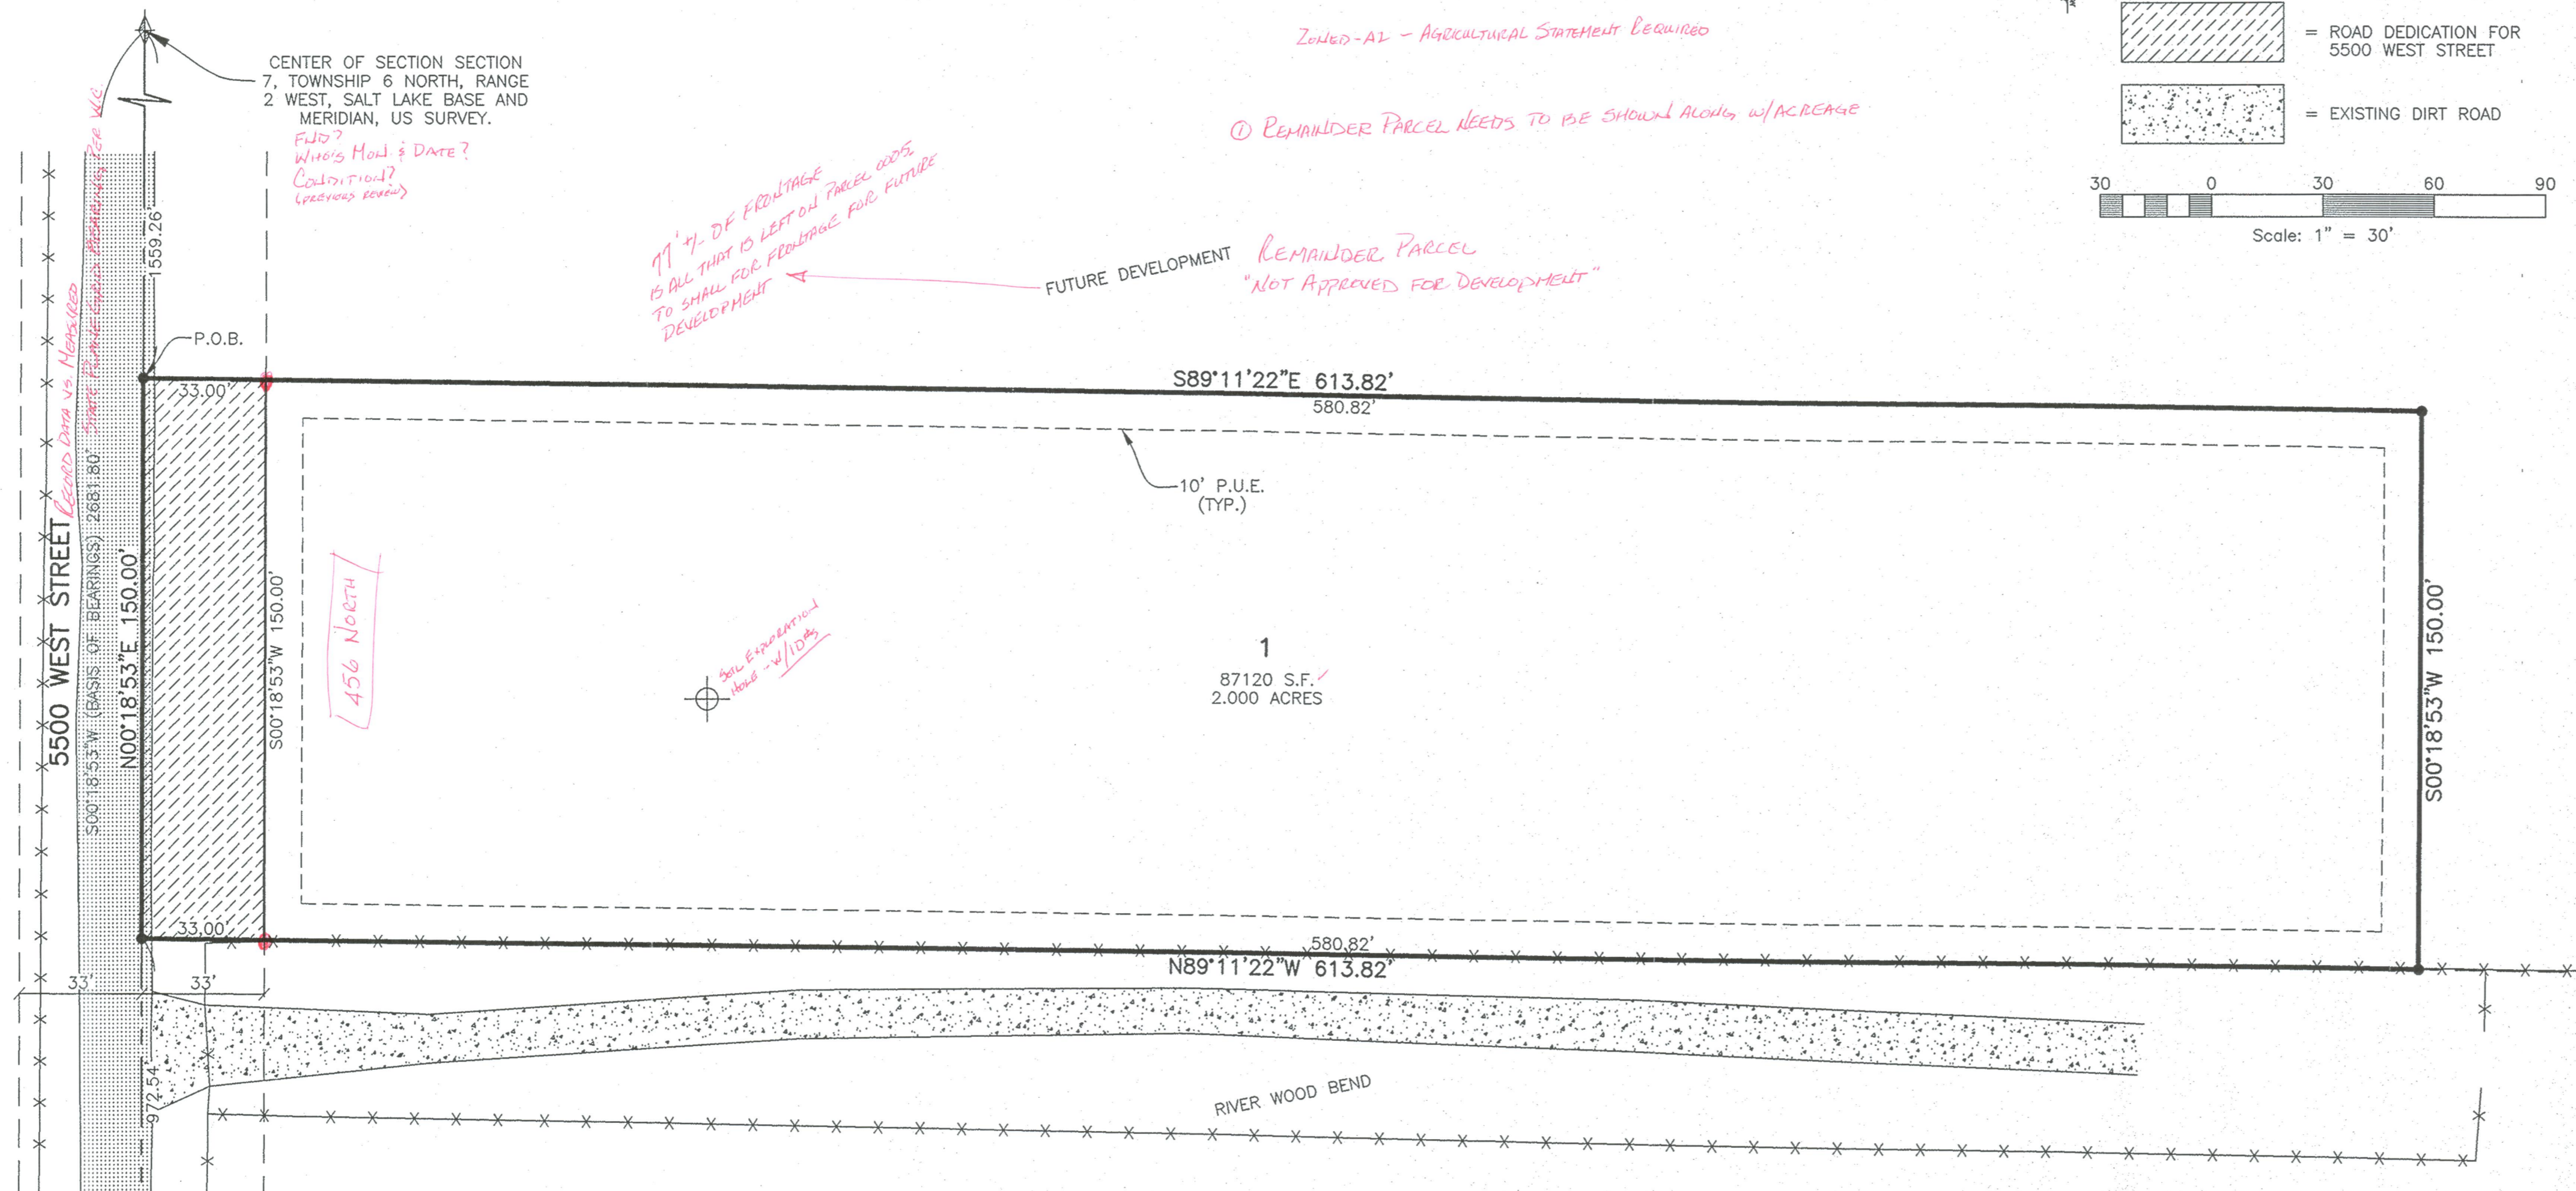 CENTER OF SECTION SECTION
7, TOWNSHIP 6 NORTH, RANGE
2 WEST, SALT LAKE BASE AND
MERIDIAN, US SURVEY.
FND?
WHO'S MON. & DATE?
CONDITION?
(PREVIOUS REVIEW)
ZONED-A1 - AGRICULTURAL STATEMENT REQUIRED
① REMAINDER PARCEL NEEDS TO BE SHOWN ALONG W/ACREAGE
= ROAD DEDICATION FOR
5500 WEST STREET
= EXISTING DIRT ROAD
30 0 30 60 90
Scale: 1" = 30'
77' +/- OF FRONTAGE
IS ALL THAT IS LEFT ON PARCEL 0005
TO SMALL FOR FRONTAGE FOR FUTURE
DEVELOPMENT
FUTURE DEVELOPMENT
REMAINDER PARCEL
"NOT APPROVED FOR DEVELOPMENT"
1559.26'
RECORD DATA VS. MEASURED
STATE PLANE GRID BEARING PER W.C.
P.O.B.
33.00'
S89°11'22"E 613.82'
580.82'
10' P.U.E.
(TYP.)
5500 WEST STREET
S00°18'53"W (BASIS OF BEARINGS) 2681.80'
N00°18'53"E 150.00'
S00°18'53"W 150.00'
456 NORTH
SOIL EXPLORATION
HOLE - W/ID#s
1
87120 S.F.
2.000 ACRES
S00°18'53"W 150.00'
33.00'
580.82'
N89°11'22"W 613.82'
33'
33'
972.54'
RIVER WOOD BEND